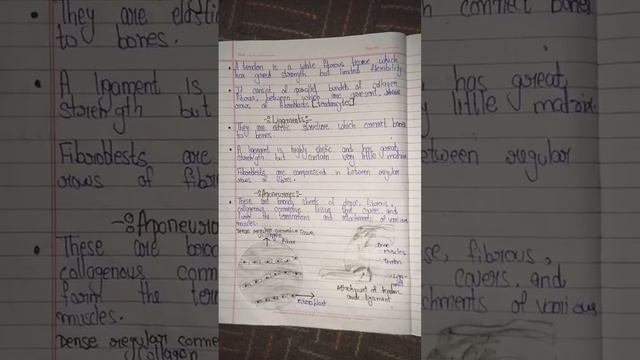 A tendon is a white fibrous tissue which
has great strength but limited flexibility
It consist of parallel bundels of collagen
fibrous, between which are present
rows of fibroblasts [tendocytes]
-:Ligaments:-
They are elastic structure which connect bones
to bones.
A ligament is highly elastic and has great
strength but contain very little matrix
Fibroblests are compressed in between regular
rows of fibres.
-:Aponeuroses:-
These are broad sheets of dense, fibrous,
collagenous connective tissue that covers and
form the terminations and attachments of various
muscles.
Dense regular connective tissue
collagen
fibre
Fibroblast
Bone
muscles
Tendon
Attachment of tendon
and ligament
They are elastic
to bones.
A ligament is
strength but
Fibroblests are
rows of
-:Aponeuro
These are broad
collagenous conn
form the ter
muscles.
Dense regular conne
collagen
connect bones
has great
very little matrix
between regular
se, fibrous,
covers and
chments of various